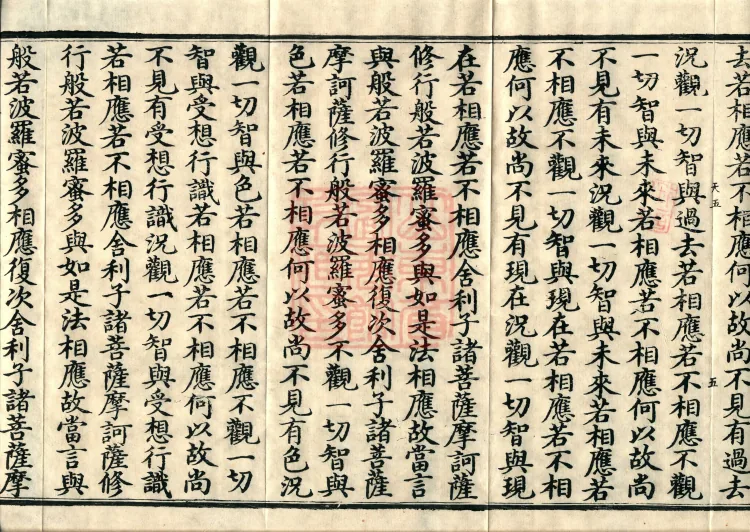 去若相應若不相應何以故尚不見有過去
況觀一切智與過去若相應若不相應不觀
一切智與未來若相應若不相應何以故尚
不見有未來況觀一切智與未來若相應若
不相應不觀一切智與現在若相應若不相
應何以故尚不見有現在況觀一切智與現
天五
五
在若相應若不相應舍利子諸菩薩摩訶薩
修行般若波羅蜜多與如是法相應故當言
與般若波羅蜜多相應復次舍利子諸菩薩
摩訶薩修行般若波羅蜜多不觀一切智與
色若相應若不相應何以故尚不見有色況
觀一切智與色若相應若不相應不觀一切
智與受想行識若相應若不相應何以故尚
不見有受想行識況觀一切智與受想行識
若相應若不相應舍利子諸菩薩摩訶薩修
行般若波羅蜜多與如是法相應故當言與
般若波羅蜜多相應復次舍利子諸菩薩摩